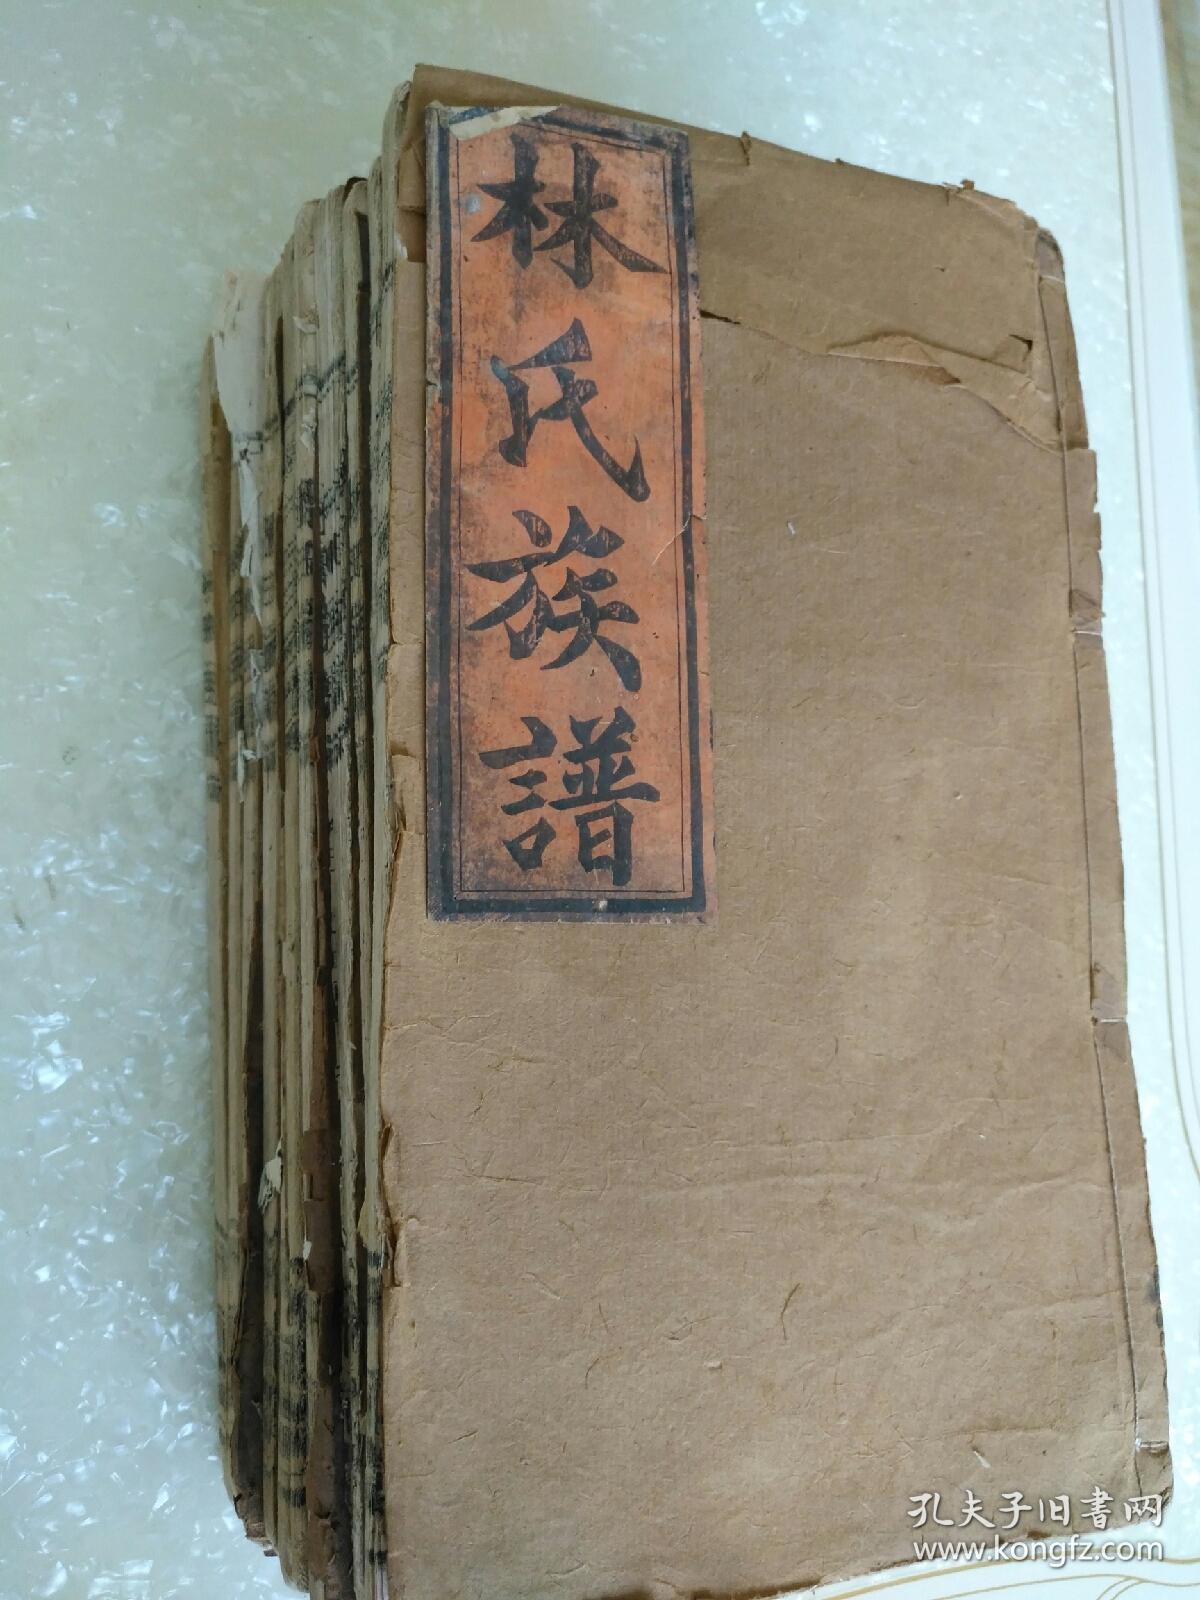 林氏族譜
孔夫子旧书网
www.kongfz.com